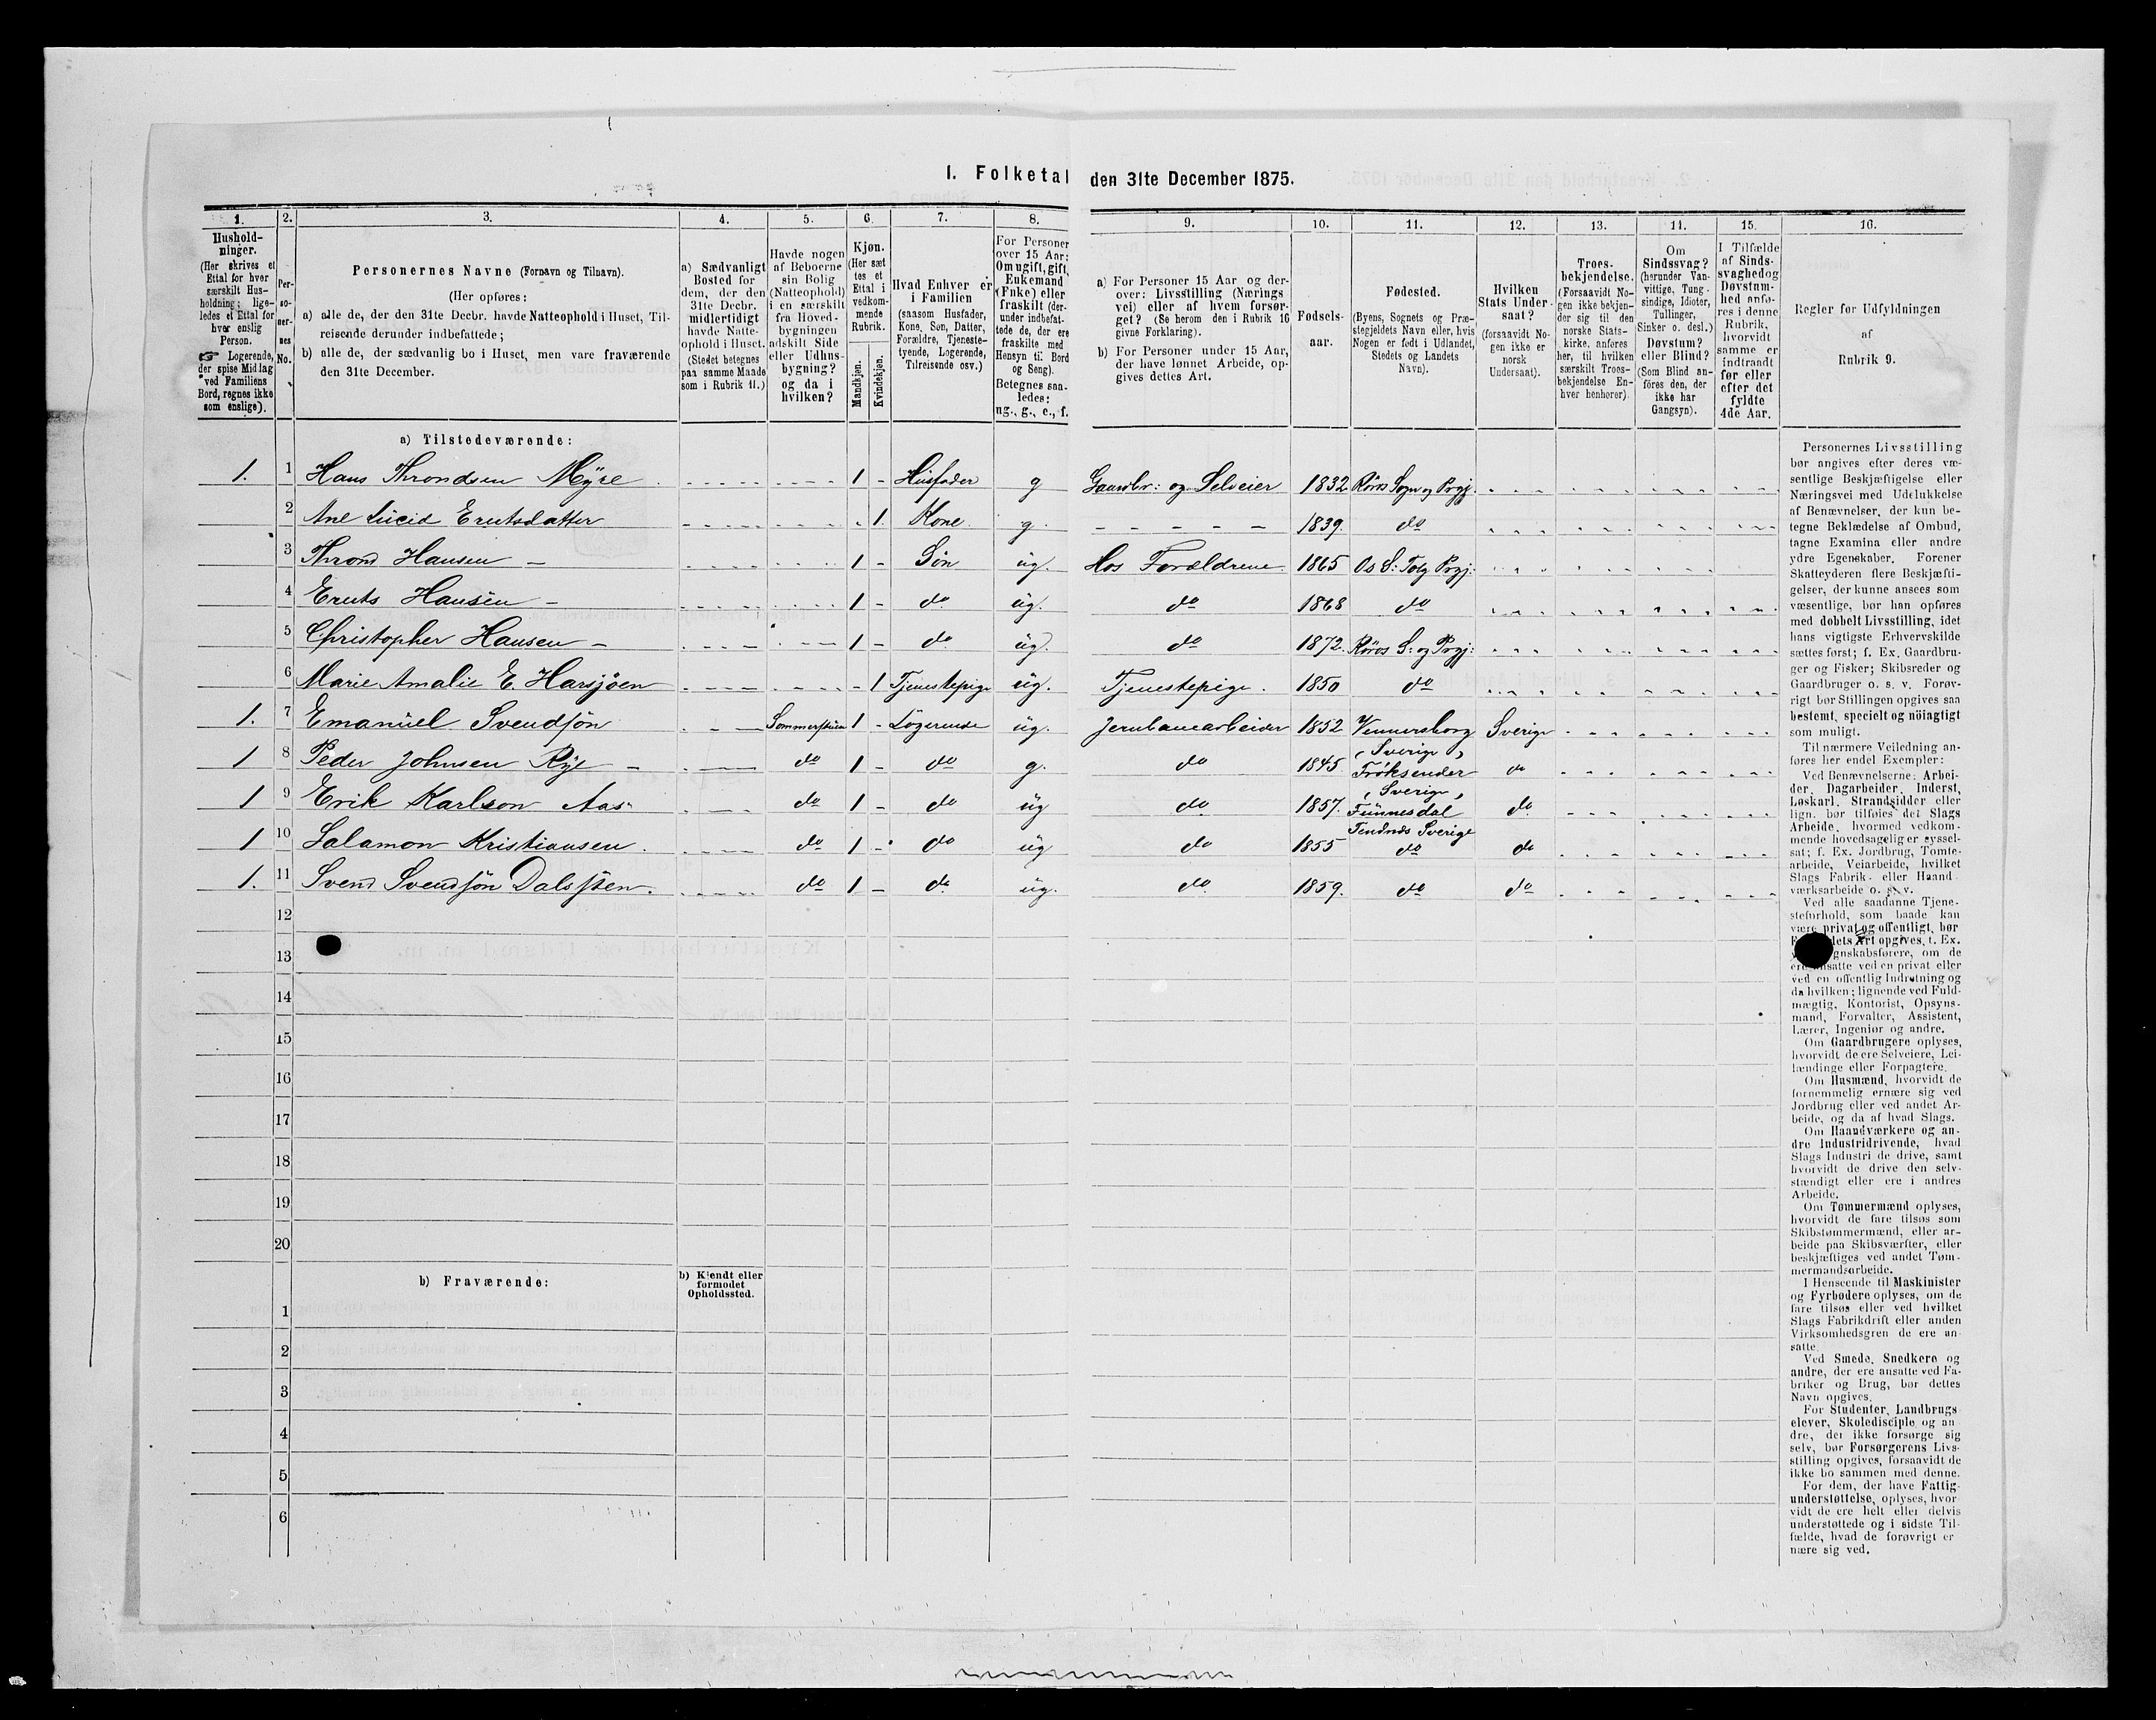 I. Folketal den 31te December 1875.
1. 2. 3. 4. 5. 6. 7. 8. 9. 10. 11. 12. 13. 14. 15. 16.
Hushold-
ninger.
(Her skrives et
Ettal for hver
særskilt Hus-
holdning; lige-
ledes et Ettal for
hver enslig
Person.
☞ Logerende,
der spise Middag
ved Familiens
Bord, regnes ikke
som enslige).
Per-
so-
ner-
nes
No.
Personernes Navne (Fornavn og Tilnavn).
(Her opføres:
a) alle de, der den 31te Decbr. havde Natteophold i Huset, Til-
reisende derunder indbefattede;
b) alle de, der sædvanlig bo i Huset, men vare fraværende
den 31te December.
a) Sædvanligt
Bosted for
dem, der den
31te Decbr.
midlertidigt
havde Natte-
ophold i Huset.
(Stedet betegnes
paa samme Maade
som i Rubrik 11.)
Havde nogen
af Beboerne
sin Bolig
(Natteophold)
i en særskilt
fra Hoved-
bygningen
adskilt Side
eller Udhus-
bygning?
og da i
hvilken?
Kjøn.
(Her sæt
tes et
Ettal i
vedkom-
mende
Rubrik.
Mandkjøn.
Kvindekjøn.
Hvad Enhver er
i Familien
(saasom Husfader,
Kone, Søn, Datter,
Forældre, Tjeneste-
tyende, Logerende,
Tilreisende osv.)
For Personer
over 15 Aar:
Om ugift, gift,
Enkemand
(Enke) eller
fraskilt (der-
under indbefat-
tede de, der ere
fraskilte med
Hensyn til Bord
og Seng).
Betegnes saa-
ledes:
ug., g., e., f.
a) For Personer 15 Aar og der-
over: Livsstilling (Nærings
vei) eller af hvem forsør-
get? (Se herom den i Rubrik 16
givne Forklaring).
b) For Personer under 15 Aar,
der have lønnet Arbeide, op-
gives dettes Art.
Fødsels-
aar.
Fødested.
(Byens, Sognets og Præ-
stegjeldets Navn eller, hvis
Nogen er født i Udlandet,
Stedets og Landets
Navn).
Hvilken
Stats Under-
saat?
(forsaavidt No-
gen ikke er
norsk
Undersaat).
Troes-
bekjendelse.
(Forsaavidt No-
gen ikke bekjen-
der sig til den
norske Stats-
kirke, anføres
her, til hvilken
særskilt Troes-
bekjendelse En-
hver henhører).
Om
Sindssvag?
(herunder Van-
vittige, Tung-
sindige, Idioter,
Tullinger,
Sinker o. desl.)
Døvstum?
eller Blind?
(Som Blind an-
føres den, der
ikke har
Gangsyn).
I Tilfælde
af Sinds-
svaghed og
Døvstum-
hed anfø-
res i denne
Rubrik,
hvorvidt
samme er
indtraadt
før eller
efter det
fyldte
4de Aar.
Regler for Udfyldningen
af
Rubrik 9.
a) Tilstedeværende:
1. 1 Hans Throndsen Myre 1 - Husfader g Gaardbr: og Selveier 1832 Röros Sogn og Prgj.
2 Ane Lucid Erutsdatter 1. Kone g. 1839. do
3 Thrond Hansen - 1 - Sön ug. Hos Forældrene 1865 Os S: Tolg Prgj:
4 Eruts Hansen - 1 - do ug. do 1868 do
5 Christopher Hansen - 1 - do ug. do 1872. Röros S: og Prgj:
6 Marie Amalie E. Harsjöen - 1 Tjenestepige ug. Tjenestepige. 1850 do
1. 7 Emanuel Svendsön Sommerstuen 1 - Logerende ug. Jernbanearbeider 1852 Vennersborg Sverige
(Sverige)
1 8 Peder Johnsen Rye - do 1 - do g. do 1845. Fröksender do
(Sverige)
1 9 Erik Karlson Aas do 1 - do ug do 1857. Funnesdal do
Sverige
1 10 Salamon Kristiansen. do 1 - do ug do 1855 do do
1. 11 Svend Svendsön Dalssten. do 1 - do ug. do 1859. do do
12
13
14
15
16
17
18
19
20
b) Fraværende:
b) Kjendt eller
formodet
Opholdssted.
1
2
3
4
5
6
Personernes Livsstilling
bør angives efter deres væ-
sentlige Beskjæftigelse eller
Næringsvei med Udelukkelse
af Benævnelser, der kun be-
tegne Beklædelse af Ombud,
tagne Examina eller andre
ydre Egenskaber. Forener
Skatteyderen flere Beskjæfti-
gelser, der kunne ansees som
væsentlige, bør han opføres
med dobbelt Livsstilling, idet
hans vigtigste Erhvervskilde
sættes først; f. Ex. Gaardbru-
ger og Fisker; Skibsreder og
Gaardbruger o. s. v. Forøv-
rigt bør Stillingen opgives saa
bestemt, specielt og nöiagtigt
som muligt.
Til nærmere Veiledning an-
føres her endel Exempler:
Ved Benævnelserne: Arbei-
der, Dagarbeider, Inderst,
Løskarl, Strandsidder eller
lign. bør tilføies det Slags
Arbeide, hvormed vedkom-
mende hovedsagelig er syssel-
sat; f. Ex. Jordbrug, Tomte-
arbeide, Veiarbeide, hvilket
Slags Fabrik- eller Haand-
værksarbeide o. s. v.
Ved alle saadanne Tjene-
steforhold, som baade kan
være privat og offentligt, bør
dets Art opgives, t. Ex.
gnskabsførere, om de
ere ansatte ved en privat eller
ved en offentlig Indretning og
da hvilken; lignende ved Fuld-
mægtig, Kontorist, Opsyns-
mand, Forvalter, Assistent,
Lærer, Ingeniør og andre.
Om Gaardbrugere oplyses,
hvorvidt de ere Selveiere, Lei-
lændinge eller Forpagtere.
Om Husmænd, hvorvidt de
fornemmelig ernære sig ved
Jordbrug eller ved andet Ar-
beide, og da af hvad Slags.
Om Haandværkere og an-
dre Industridrivende, hvad
Slags Industri de drive, samt
hvorvidt de drive den selv-
stændigt eller ere i andres
Arbeide.
Om Tømmermænd oplyses,
hvorvidt de fare tilsøs som
Skibstømmermænd, eller ar-
beide paa Skibsværfter, eller
beskjæftiges ved andet Tøm-
mermandsarbeide.
I Henseende til Maskinister
og Fyrbødere oplyses, om de
fare tilsøs eller ved hvilket
Slags Fabrikdrift eller anden
Virksomhedsgren de ere an-
satte.
Ved Smede, Snedkere og
andre, der ere ansatte ved Fa-
briker og Brug, bør dettes
Navn opgives.
For Studenter, Landbrugs-
elever, Skoledisciple og an-
dre, der ikke forsørge sig
selv, bør Forsørgerens Livs-
stilling opgives, forsaavidt de
ikke bo sammen med denne.
For dem, der have Fattig-
understøttelse, oplyses, hvor-
vidt de ere helt eller delvis
understøttede og i sidste Til-
fælde, hvad de forøvrigt er-
nære sig ved.